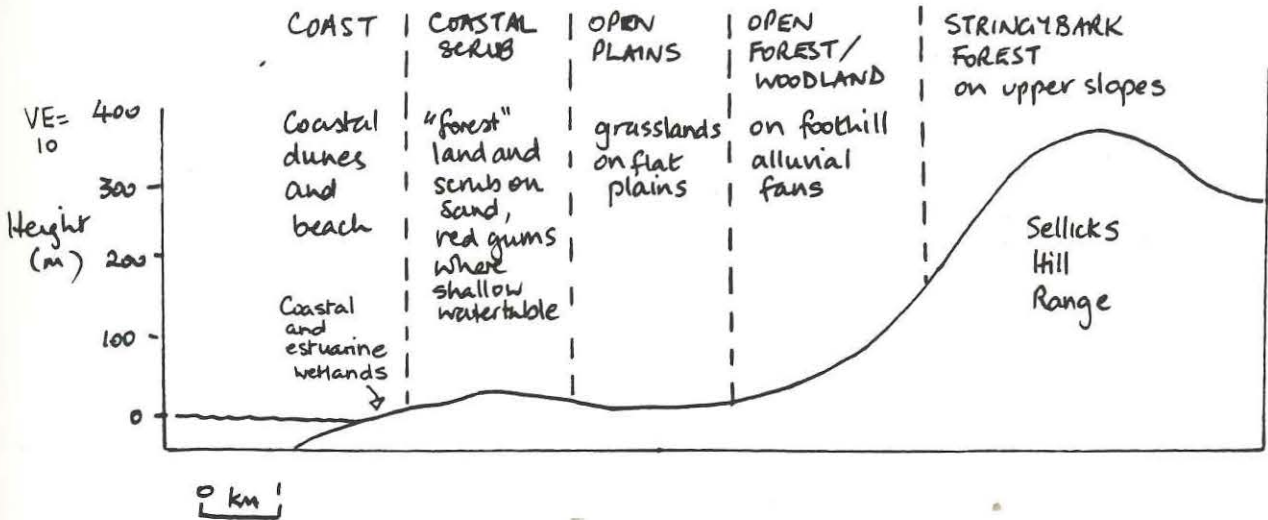 COAST
COASTAL
SCRUB
OPEN
PLAINS
OPEN
FOREST/
WOODLAND
STRINGYBARK
FOREST
on upper slopes
VE=
10
400
300
200
100
0
Height
(m)
Coastal
dunes
and
beach
Coastal
and
estuarine
wetlands
"forest"
land and
scrub on
sand,
red gums
where
shallow
watertable
grasslands
on flat
plains
on foothill
alluvial
fans
Sellicks
Hill
Range
0 km 1